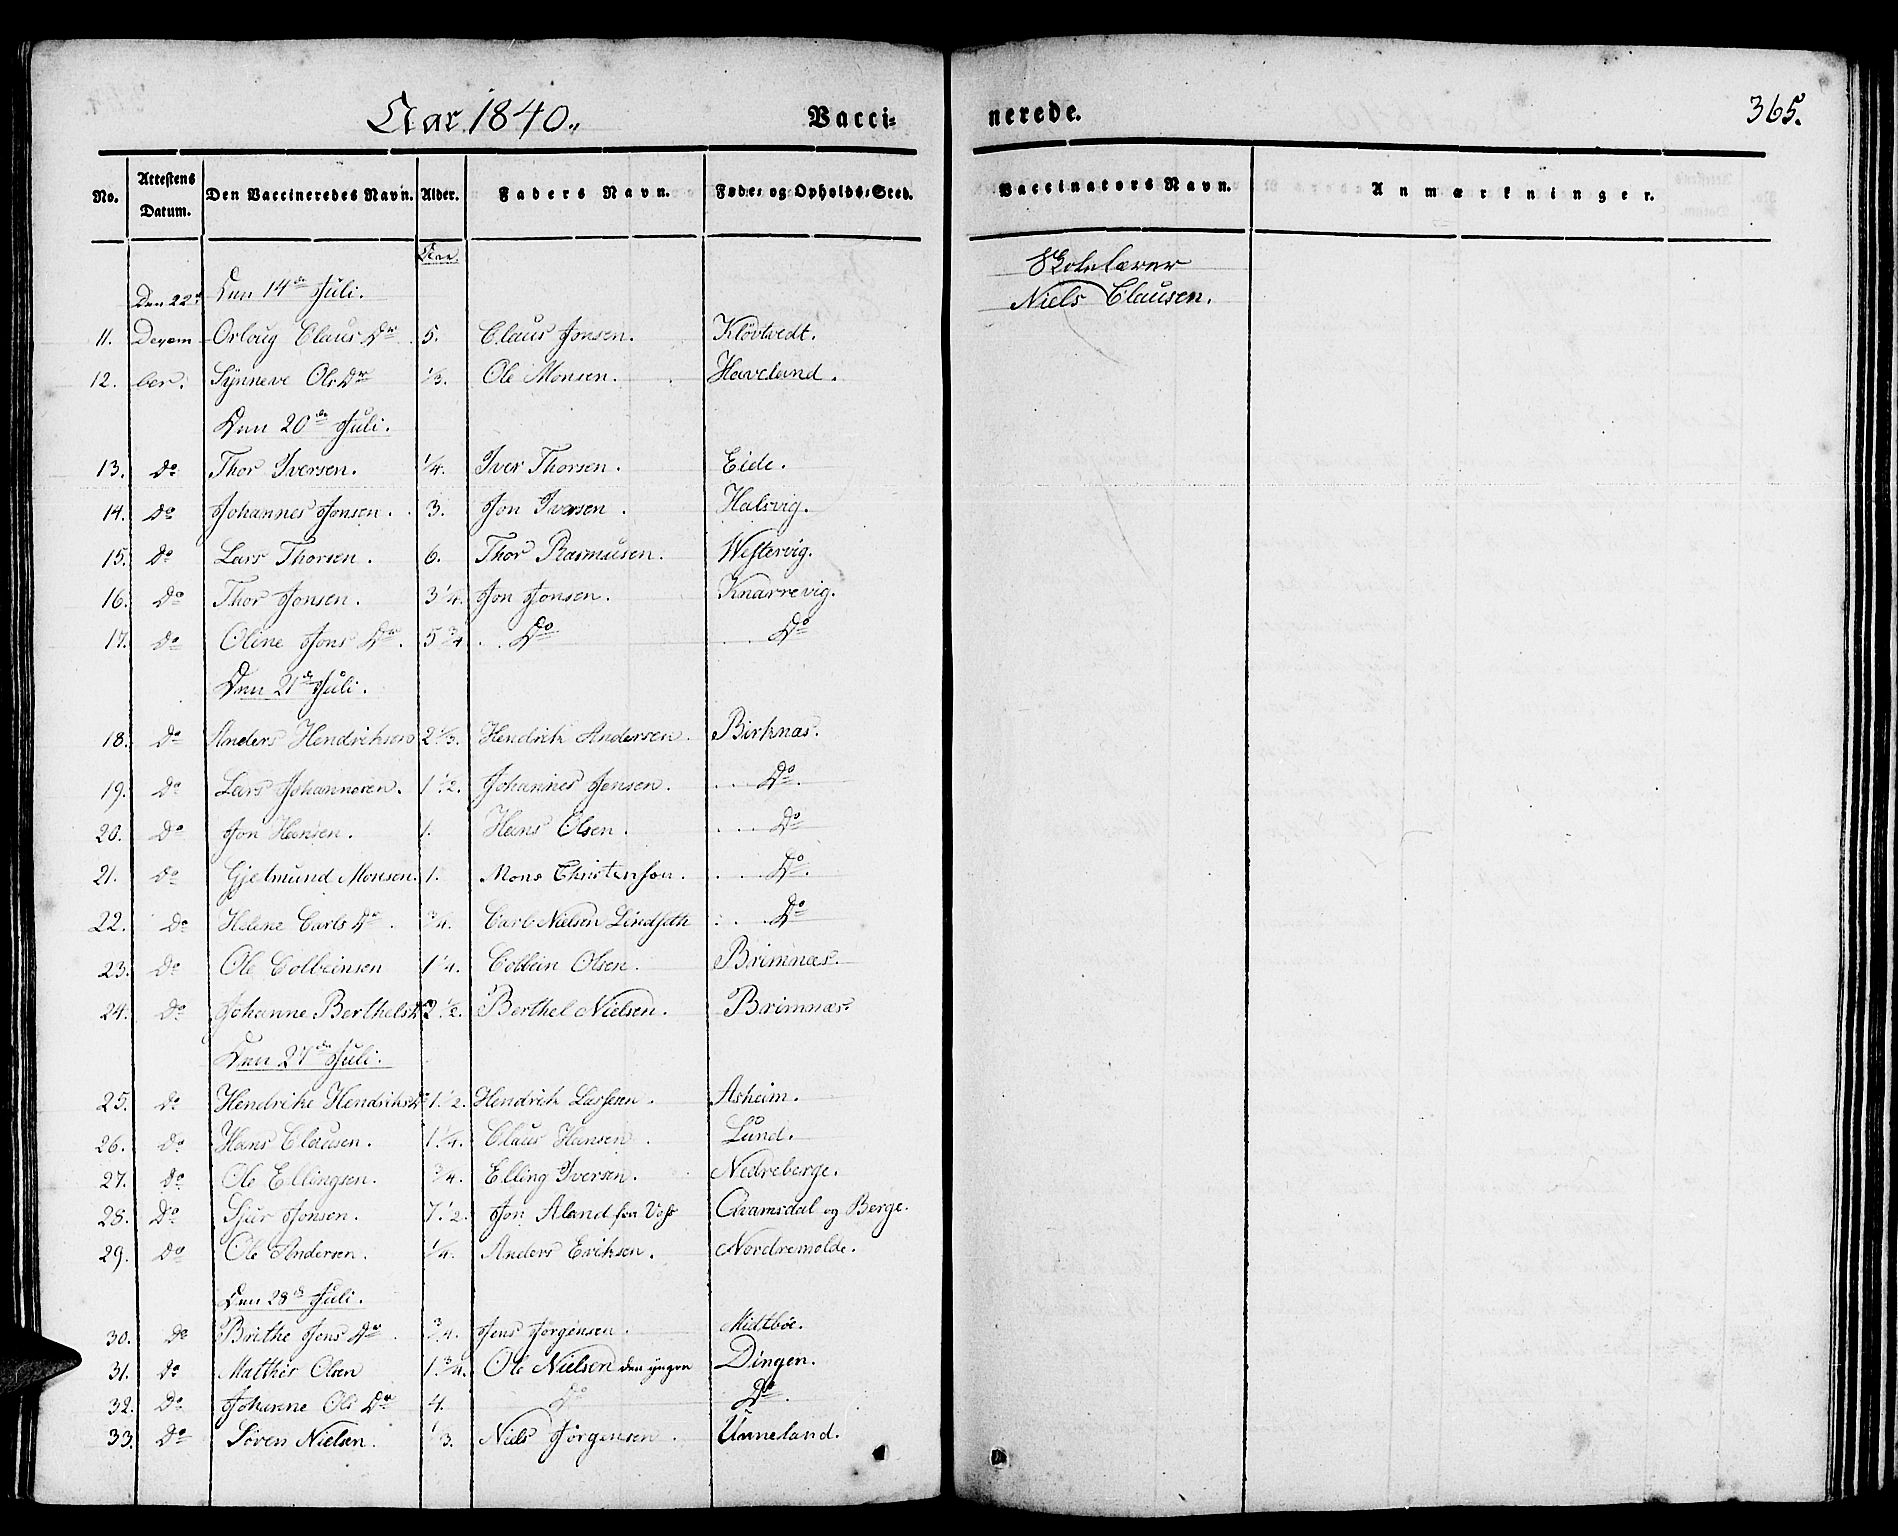 Aar 1840.
Vacci- nerede.
365.
No. Attestens Datum. Den Vaccineredes Navn. Alder. Faders Navn. Fødes og Opholds-Sted. Vaccinators Navn. Anmærkninger.
Aar.
Den 22de Den 14de Juli. Skolelærer
Niels Clausen.
11. Decem Orloug Claus Dr 5. Claus Jonsen. Klövtvedt.
12. ber. Synneve Ols Dr 1/3. Ole Monsen. Haveland.
Den 20de Juli.
13. Do Thor Iversen. 1/4. Iver Thorsen. Eide.
14. Do Johannes Jonsen. 3. Jon Iversen. Halsvig.
15. Do Lars Thorsen. 6. Thor Rasmusen. Westervig.
16. Do Thor Jonsen. 3 1/4. Jon Jonsen. Knarrevig.
17. Do Oline Jons Dr. 5 3/4 Do Do
Den 21de Juli.
18. Do Anders Hendriksen 2 1/3. Hendrik Andersen. Birknæs.
19. Do Lars Johannesen. 1 1/2. Johannes Jensen. Do.
20. Do Jon Hansen. 1. Hans Olsen. Do
21. Do Gjelmund Monsen. 1. Mons Christensen. Do.
22. Do Helene Carls Dr. 3/4. Carl Nielsen Do
23. Do Ole Colbeinsen 1 1/4. Colbein Olsen. Brimnæs.
24. Do Johanne Berthels Dr 2 1/2. Berthel Nielsen. Brimnæs.
Den 27de Juli.
25. Do Hendrike Hendriks Dr 1 1/2. Hendrik Lassesen. Asheim.
26. Do Hans Clausen. 1 1/4. Claus Hansen. Lund.
27. Do Ole Ellingsen. 3/4. Elling Iversen. Nedreberge.
28. Do Sjur Jonsen. 7 1/2. Jon Aland fra Voss og Berge.
29. Do Ole Andersen. 1/4. Anders Eriksen. Nordremolde.
Den 28de Juli.
30. Do Brithe Jens Dr. 3/4. Jens Jørgensen. Midtböe.
31. Do Mathis Olsen 1 3/4. Ole Nielsen den yngre Dingen.
32. Do Johanne Ols Dr 4. Do Do.
33. Do Søren Nielsen. 1/3. Niels Jörgensen. Unneland.